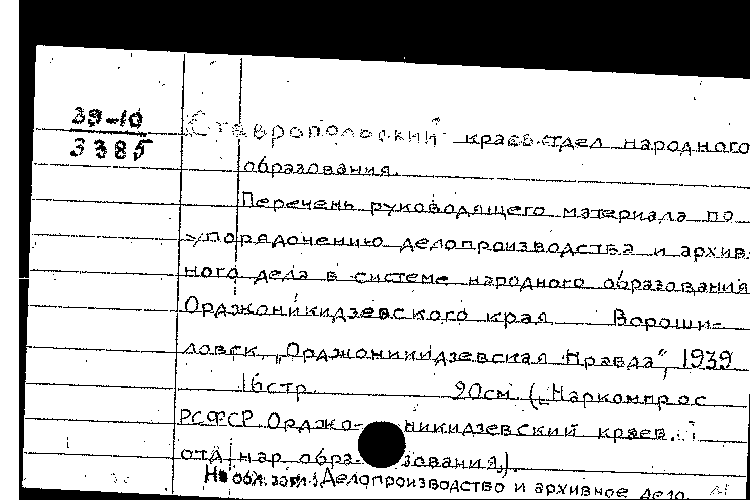 39-10
3385
Ставропольский краев. отдел народного
образования.
Перечень руководящего материала по
упорядочению делопроизводства и архив-
ного дела в системе народного образования
Орджоникидзевского края Вороши-
ловск, „Орджоникидзевская Правда", 1939
16стр. 20см. (Наркомпрос
РСФСР. Орджоникидзевский краев.
отд. нар. образования).
На обл. загл.: Делопроизводство и архивное дело.